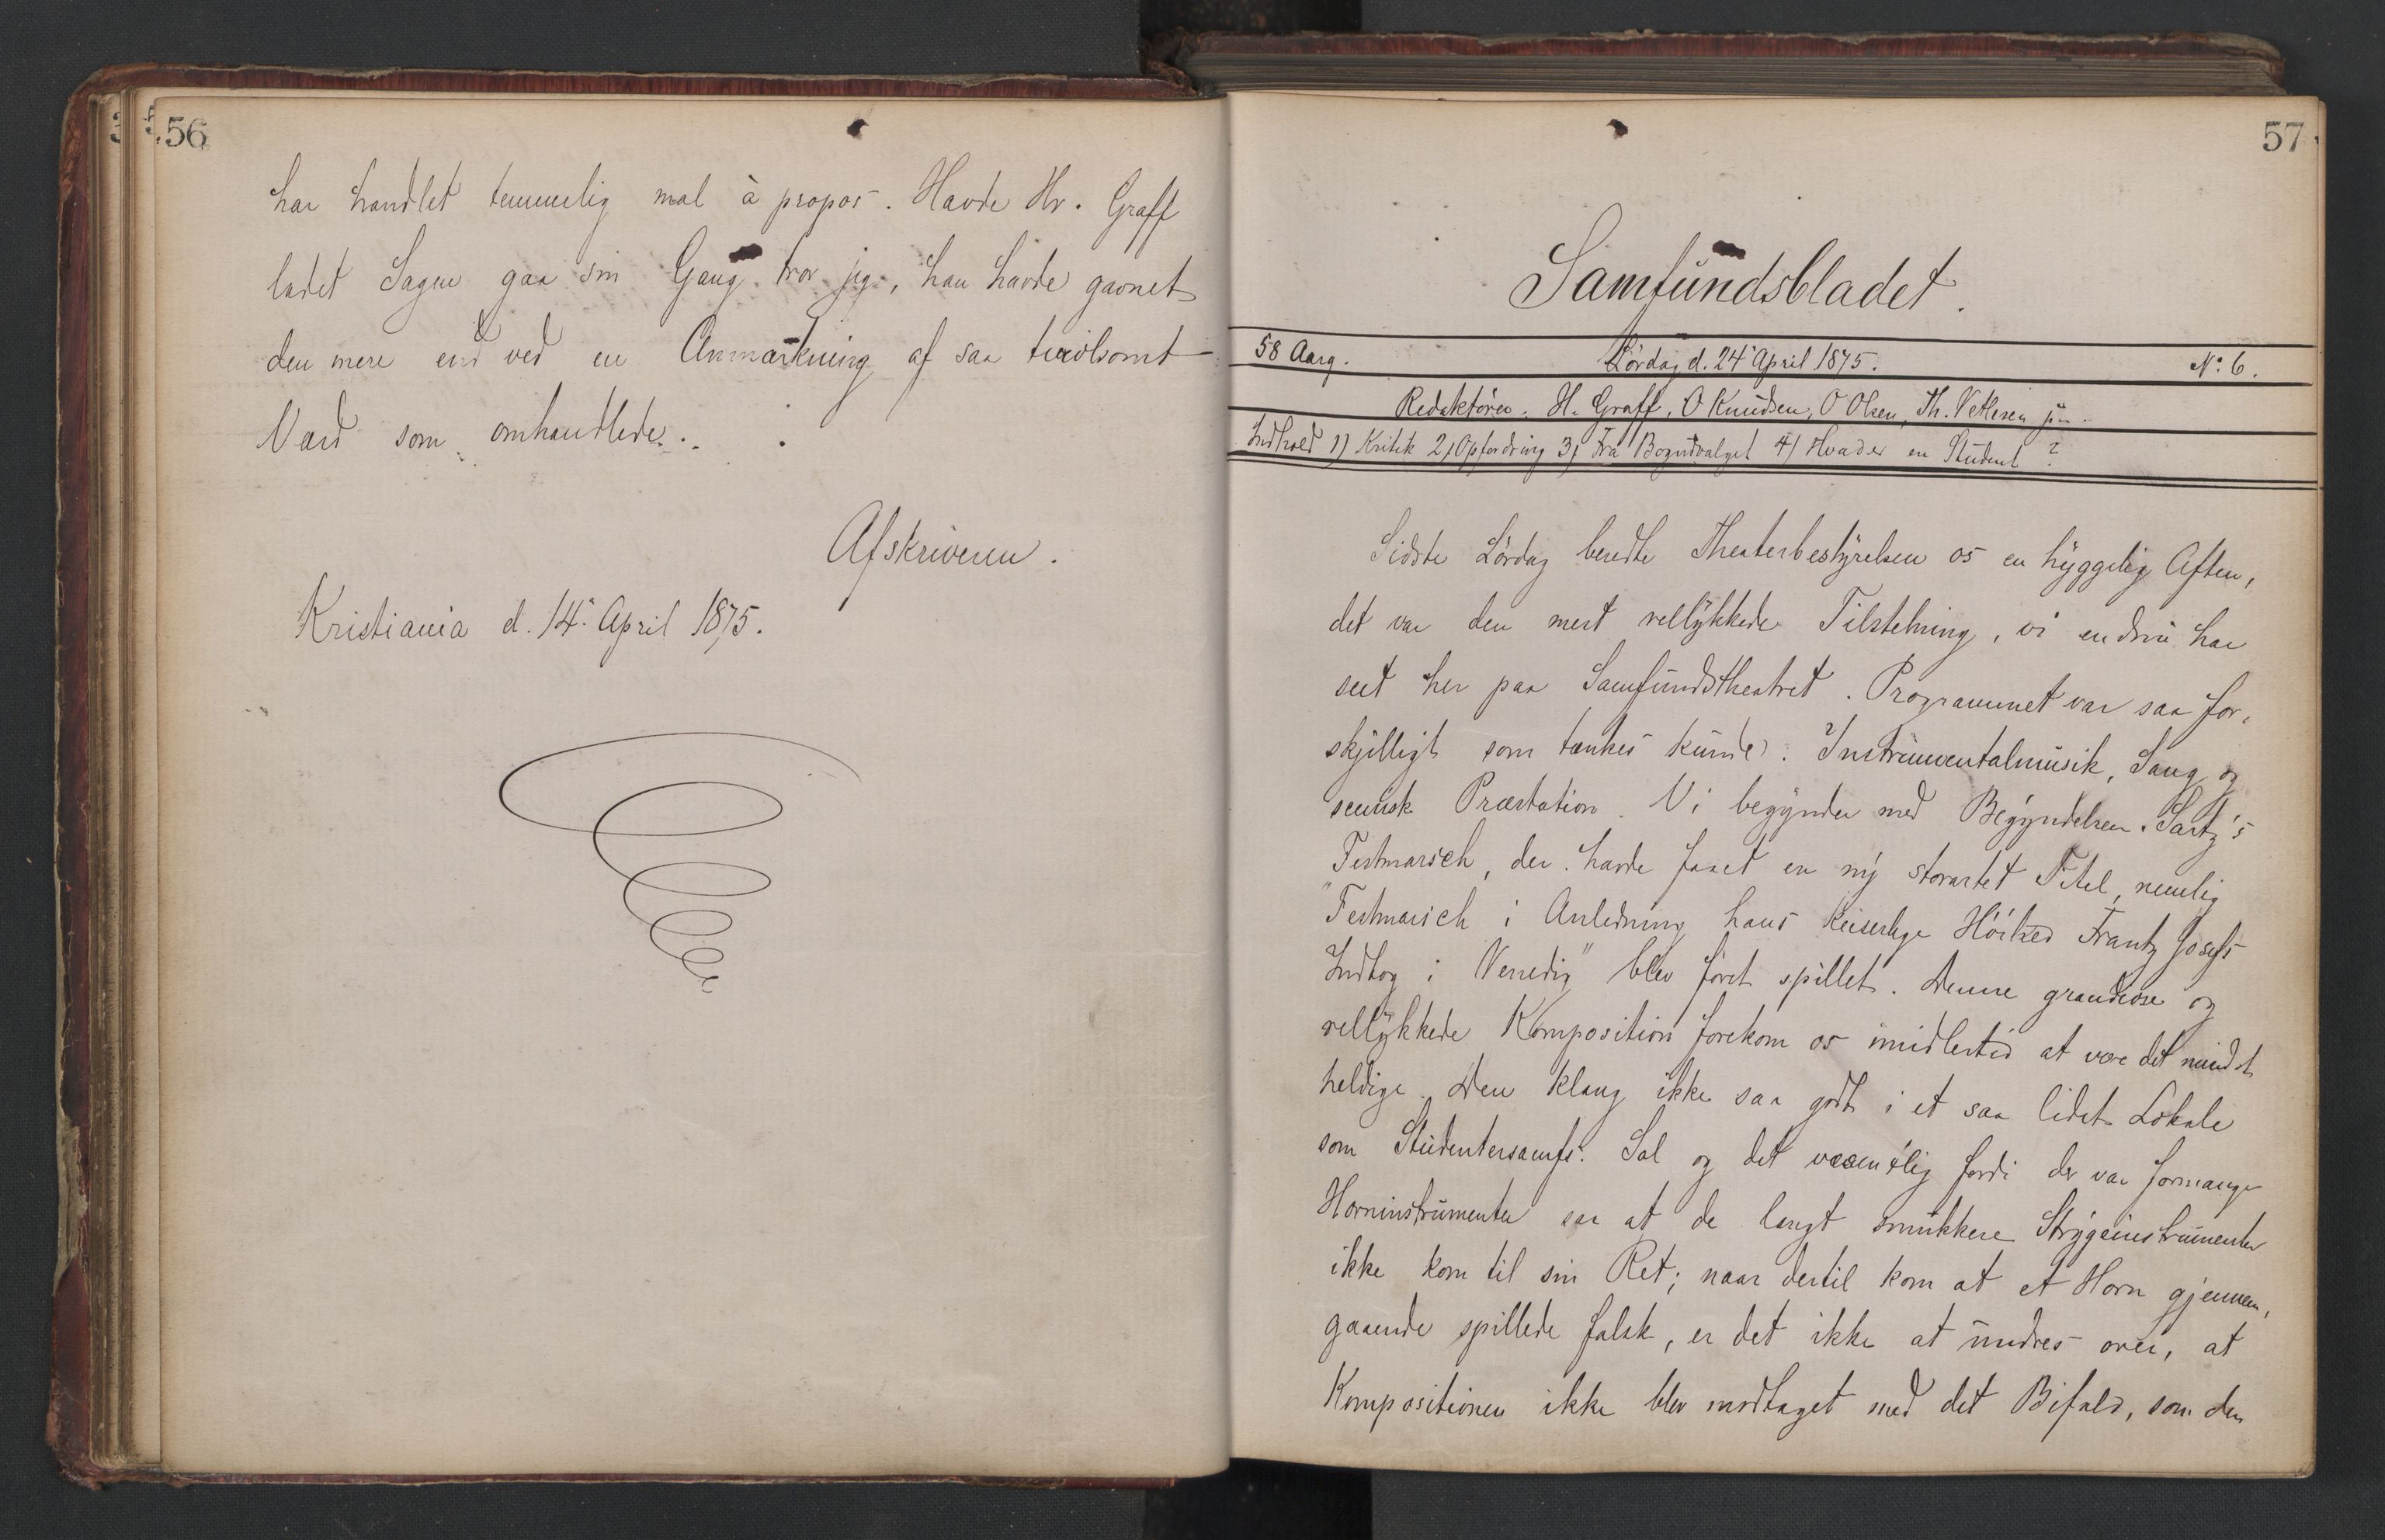 56
har handlet temmelig mal à propos. Havde Hr. Graff
ladet Sagen gaa sin Gang tror jeg, han havde gavnet
den mere end ved en Anmærkning af saa tvivlsomt
Værd som omhandlede.
Afskriveren.
Kristiania d. 14. April 1875.
57
Samfundsbladet.
58 Aarg. Lördag d. 24 April 1875. No. 6.
Redaktörer. H. Graff, O Knudsen, O Olsen, Th. Vetlesen jun.
Indhold 1) Kritik 2) Opfordring 3) Fra Bogudvalget 4) Hvad er en Student?
Sidste Lördag beredte Theaterbestyrelsen os en hyggelig Aften,
det var den mest vellykkede Tilstelning, vi endnu har
seet her paa Samfundstheatret. Programmet var saa for-
skjelligt som tænkes kunde: Instrumentalmusik, Sang og
scenisk Præstation. Vi begynder med Begyndelsen. Sartz's
Festmarsch, der havde faaet en ny storartet Titel, nemlig
"Festmarsch i Anledning hans keiserlige Höihed Frantz Josefs
Indtog i Venedig" blev först spillet. Denne grandiose og
vellykkede Komposition forekom os imidlertid at være det mindst
heldige. Den klang ikke saa godt i et saa lidet Lokale
som Studentersamfs. Sal og det væsentlig fordi der var formange
Horninstrumenter saa at de langt smukkere Strygeinstrumenter
ikke kom til sin Ret; naar dertil kom at et Horn gjennem-
gaaende spillede falsk, er det ikke at undres over, at
Kompositionen ikke blev modtaget med det Bifald, som den